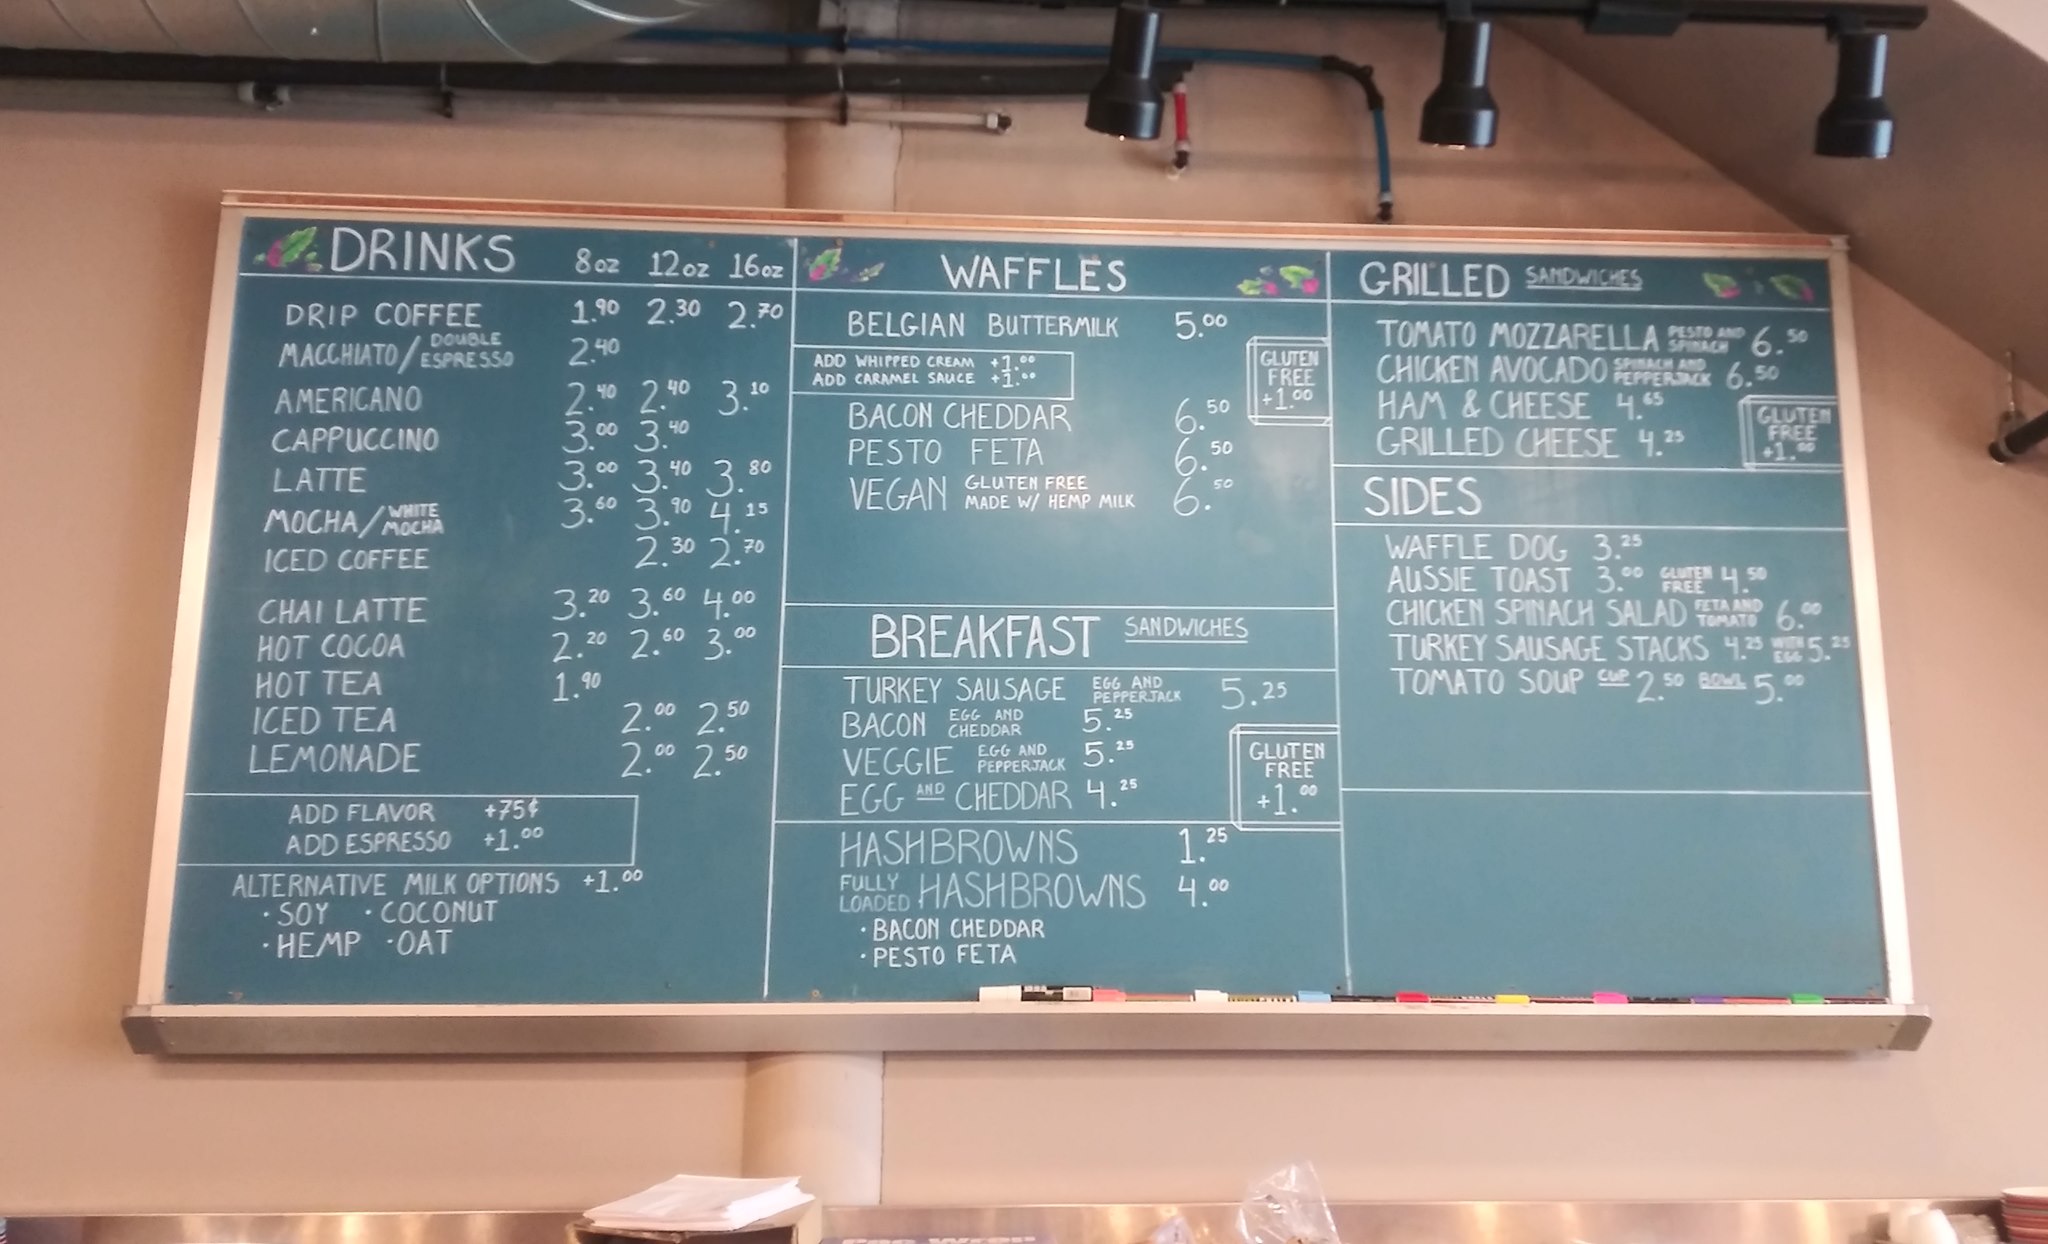 DRINKS 8oz 12oz 16oz
DRIP COFFEE 1.90 2.30 2.70
MACCHIATO/DOUBLE ESPRESSO 2.40
AMERICANO 2.40 2.40 3.10
CAPPUCCINO 3.00 3.40
LATTE 3.00 3.40 3.80
MOCHA/WHITE MOCHA 3.60 3.90 4.15
ICED COFFEE 2.30 2.70
CHAI LATTE 3.20 3.60 4.00
HOT COCOA 2.20 2.60 3.00
HOT TEA 1.90
ICED TEA 2.00 2.50
LEMONADE 2.00 2.50
ADD FLAVOR +75¢
ADD ESPRESSO +1.00
ALTERNATIVE MILK OPTIONS +1.00
· SOY · COCONUT
· HEMP · OAT
WAFFLES
BELGIAN BUTTERMILK 5.00
ADD WHIPPED CREAM +1.00
ADD CARAMEL SAUCE +1.00
GLUTEN
FREE
+1.00
BACON CHEDDAR 6.50
PESTO FETA 6.50
VEGAN GLUTEN FREE MADE W/ HEMP MILK 6.50
BREAKFAST SANDWICHES
TURKEY SAUSAGE EGG AND PEPPERJACK 5.25
BACON EGG AND CHEDDAR 5.25
VEGGIE EGG AND PEPPERJACK 5.25
EGG AND CHEDDAR 4.25
GLUTEN
FREE
+1.00
HASHBROWNS 1.25
FULLY LOADED HASHBROWNS 4.00
· BACON CHEDDAR
· PESTO FETA
GRILLED SANDWICHES
TOMATO MOZZARELLA PESTO AND SPINACH 6.50
CHICKEN AVOCADO SPINACH AND PEPPERJACK 6.50
HAM & CHEESE 4.65
GRILLED CHEESE 4.25
GLUTEN
FREE
+1.00
SIDES
WAFFLE DOG 3.25
AUSSIE TOAST 3.00 GLUTEN FREE 4.50
CHICKEN SPINACH SALAD FETA AND TOMATO 6.00
TURKEY SAUSAGE STACKS 4.25 WITH EGG 5.25
TOMATO SOUP CUP 2.50 BOWL 5.00